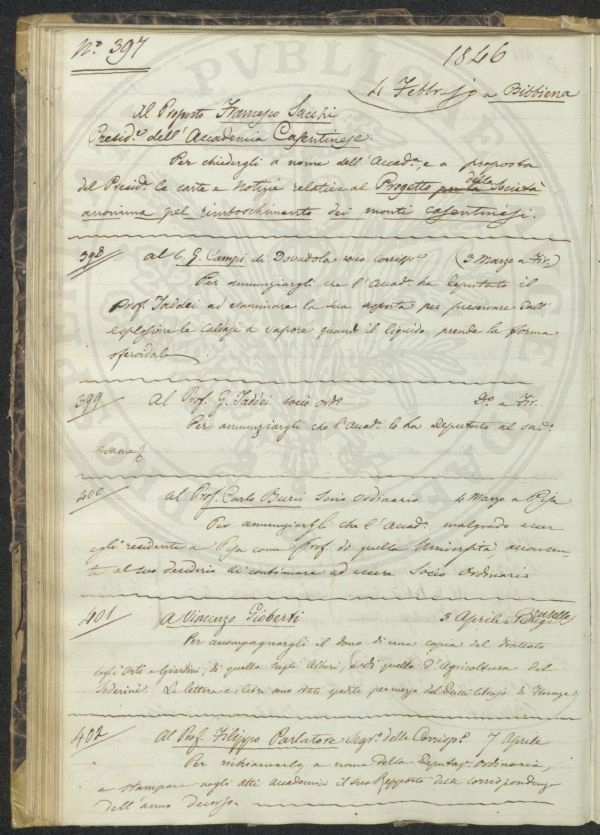 N.º 397
1846
4 Febbrajo a Bibbiena
Al Proposto Francesco Sacchi
Presid.e dell'Accademia Casentinese.
Per chiedergli a nome dell'Accad.a, e a proposta
del Presid.e le carte e notizie relative al Progetto per la della Società
anonima pel rimboschimento dei monti casentinesi.
398 Al C. G. Campi di Dovadola socio corrisp.e (3 Marzo a Fir.)
Per annunziargli che l'Accad.a ha deputato il
Prof. Taddei ad esaminare la sua per preservare dall'
esplosione le caldaje a vapore quando il liquido prende la forma
sferoidale.
399 Al Prof. G. Taddei socio ord.o D.o a Fir.
Per annunziargli che l'Accad.a lo ha deputato al sud.o
esame
400 Al Prof. Carlo Burci Socio ordinario 4 Marzo a Pisa
Per annunziargli che l'Accad.a malgrado esser
egli residente a Pisa come Prof. di quella Università, acconsen-
te al suo desiderio di continuare ad essere Socio Ordinario
401 A Vincenzo Gioberti 3 Aprile a Parigi
Per accompagnargli il dono di una copia del trattato
degli Orti e Giardini, di quello degli Alberi, e di quello d'Agricoltura del
Soderini. La lettera e i libri sono stati spediti per mezzo del Ducci librajo di Firenze
402 Al Prof. Filippo Parlatore Segr.o delle Corrisp.e 7 Aprile
Per richiamarlo a nome della Deputaz.e ordinaria,
a stampare negli atti accademici il suo Rapporto della corrispondenza
dell'anno decorso.